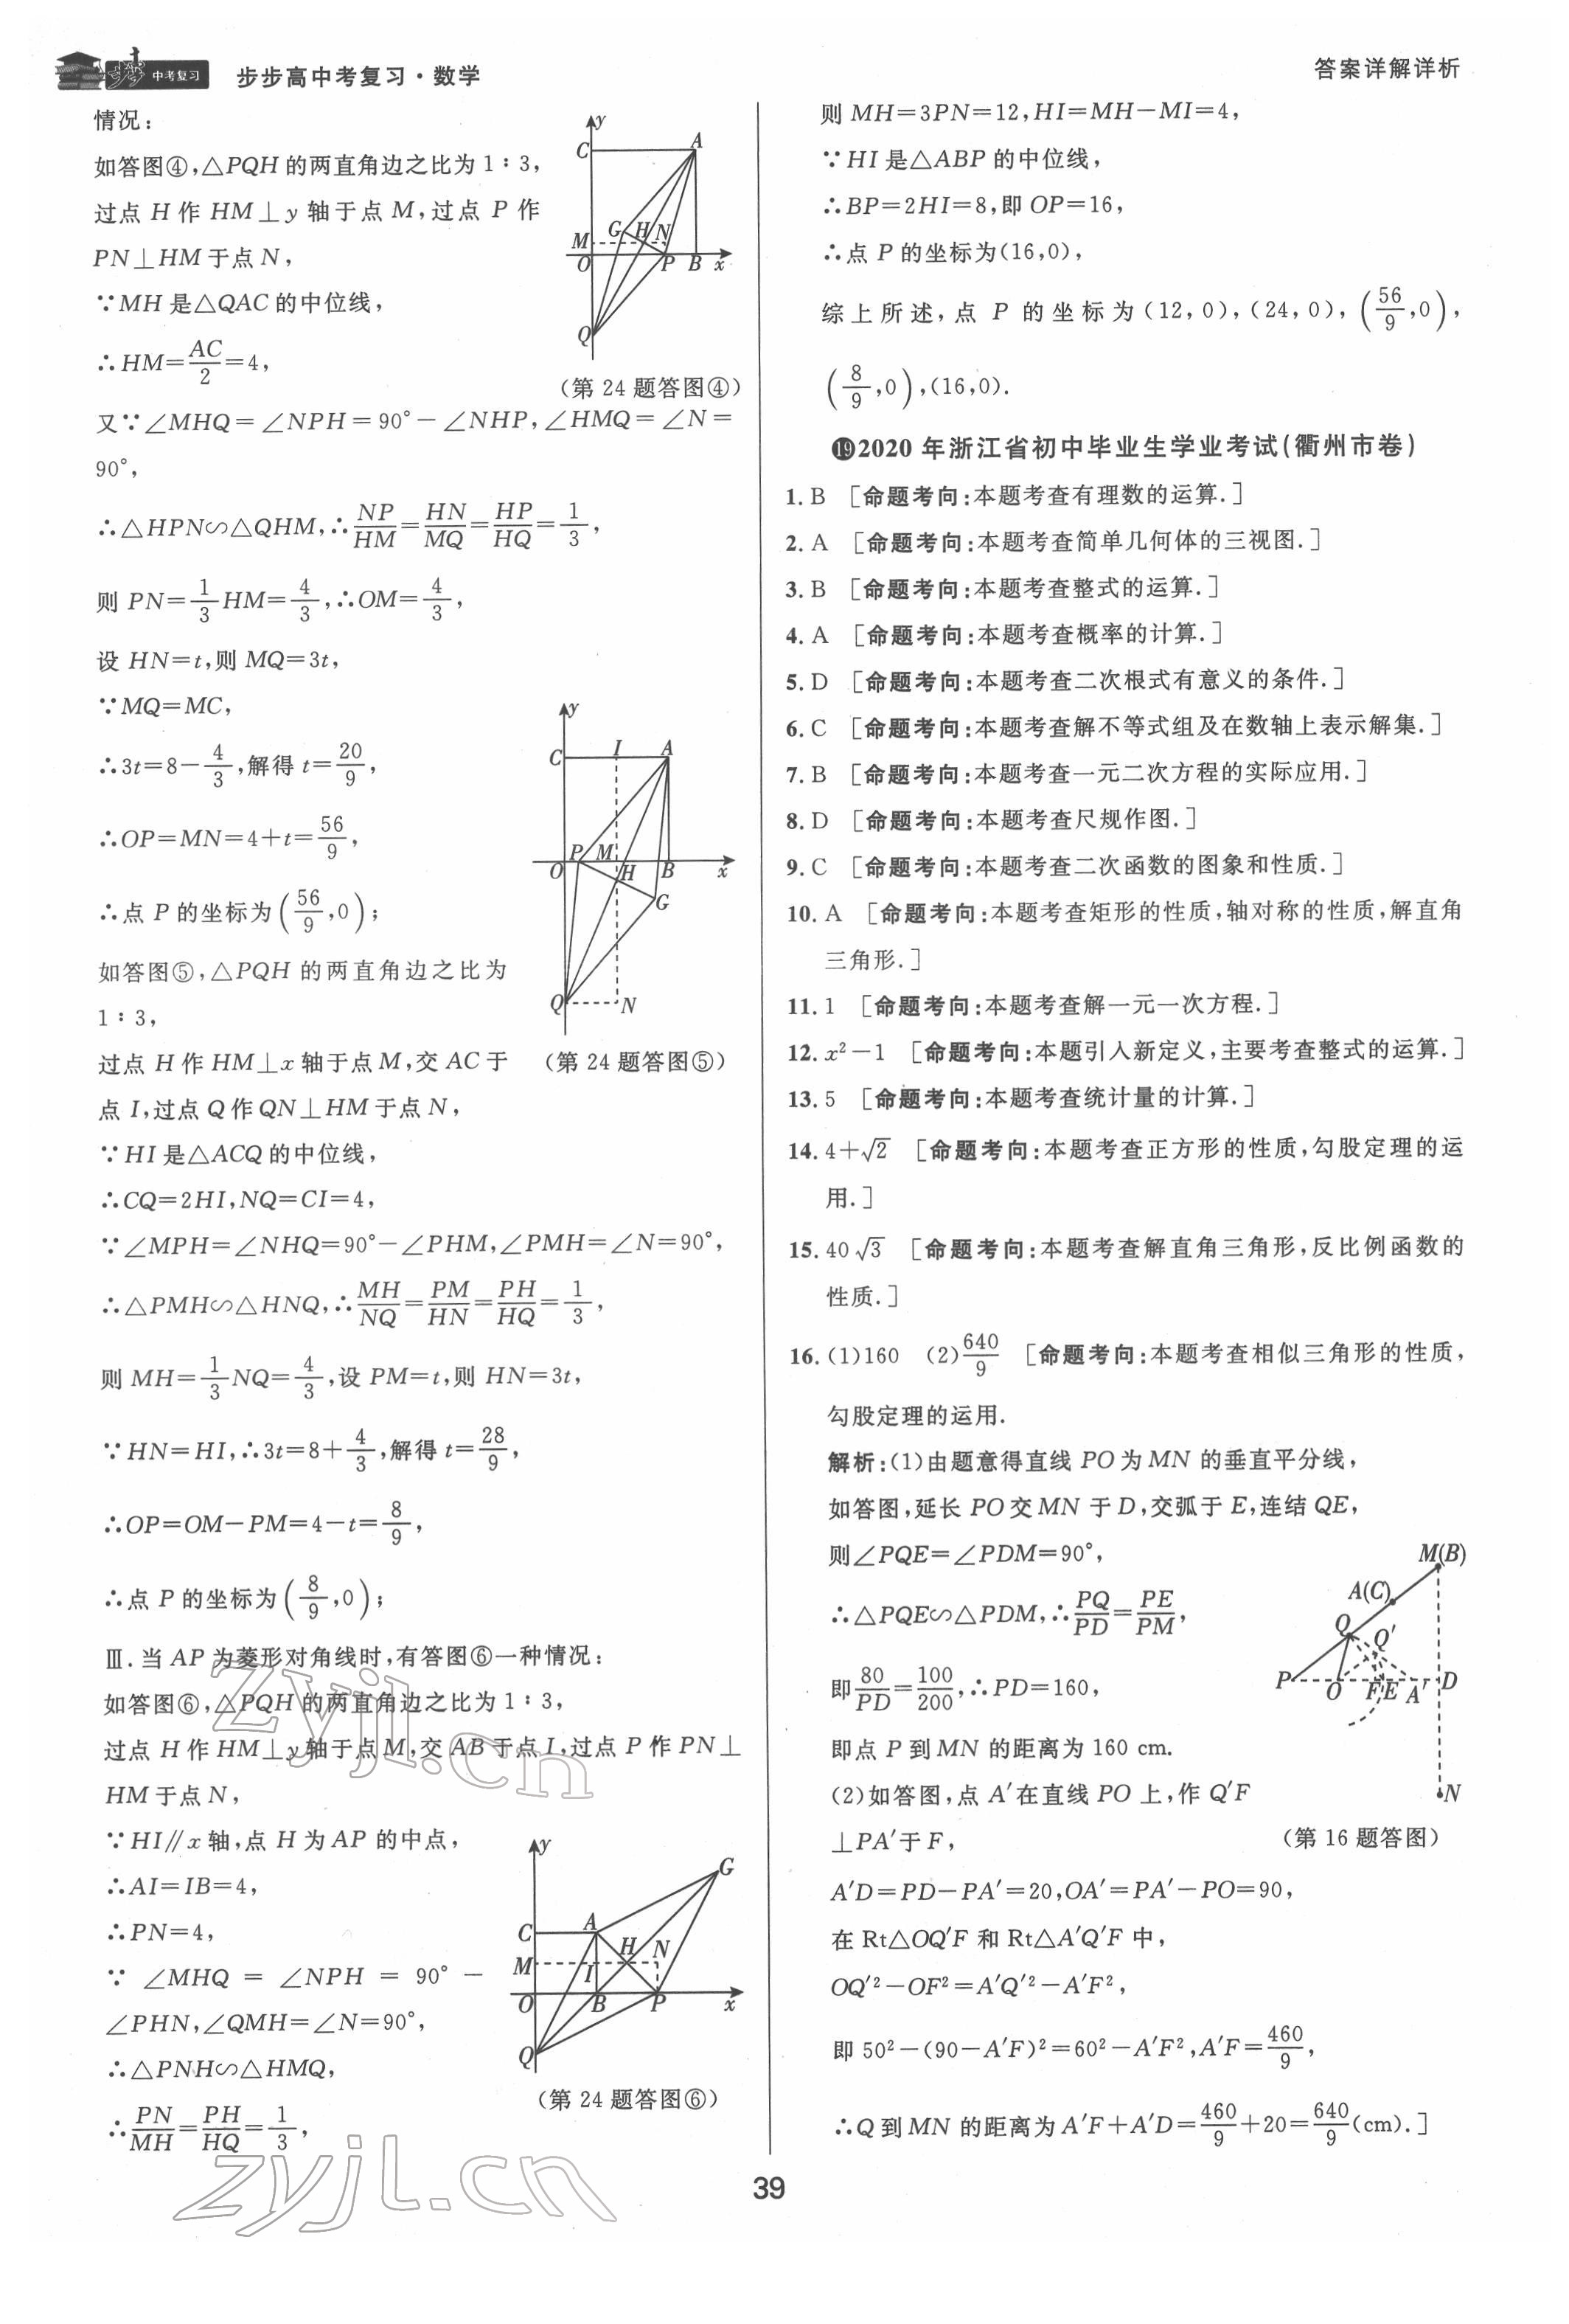 中考复习 步步高中考复习·数学
答案详解详析
情况:
如答图④,△PQH 的两直角边之比为 1∶3,
过点 H 作 HM⊥y 轴于点 M,过点 P 作
PN⊥HM 于点 N,
∵MH 是△QAC 的中位线,
∴HM=AC/2=4,
y
C
A
G
H
N
M
O
P
B
x
Q
(第 24 题答图④)
又∵∠MHQ=∠NPH=90°-∠NHP,∠HMQ=∠N=
90°,
∴△HPN∽△QHM,∴NP/HM=HN/MQ=HP/HQ=1/3,
则 PN=1/3HM=4/3,∴OM=4/3,
设 HN=t,则 MQ=3t,
∵MQ=MC,
∴3t=8-4/3,解得 t=20/9,
∴OP=MN=4+t=56/9,
∴点 P 的坐标为(56/9,0);
如答图⑤,△PQH 的两直角边之比为
1∶3,
过点 H 作 HM⊥x 轴于点 M,交 AC 于
点 I,过点 Q 作 QN⊥HM 于点 N,
y
C
I
A
O
P
M
H
B
x
G
Q
N
(第 24 题答图⑤)
∵HI 是△ACQ 的中位线,
∴CQ=2HI,NQ=CI=4,
∵∠MPH=∠NHQ=90°-∠PHM,∠PMH=∠N=90°,
∴△PMH∽△HNQ,∴MH/NQ=PM/HN=PH/HQ=1/3,
则 MH=1/3NQ=4/3,设 PM=t,则 HN=3t,
∵HN=HI,∴3t=8+4/3,解得 t=28/9,
∴OP=OM-PM=4-t=8/9,
∴点 P 的坐标为(8/9,0);
Ⅲ.当 AP 为菱形对角线时,有答图⑥一种情况:
如答图⑥,△PQH 的两直角边之比为 1∶3,
过点 H 作 HM⊥y 轴于点 M,交 AB 于点 I,过点 P 作 PN⊥
HM 于点 N,
∵HI∥x 轴,点 H 为 AP 的中点,
∴AI=IB=4,
∴PN=4,
∵∠MHQ=∠NPH=90°-
∠PHN,∠QMH=∠N=90°,
∴△PNH∽△HMQ,
∴PN/MH=PH/HQ=1/3,
y
G
C
A
H
N
M
I
O
B
P
x
Q
(第 24 题答图⑥)
zyjl.cn
zyjl.cn
则 MH=3PN=12,HI=MH-MI=4,
∵HI 是△ABP 的中位线,
∴BP=2HI=8,即 OP=16,
∴点 P 的坐标为(16,0),
综上所述,点 P 的坐标为(12,0),(24,0),(56/9,0),
(8/9,0),(16,0).
⑲2020 年浙江省初中毕业生学业考试(衢州市卷)
1. B [命题考向:本题考查有理数的运算.]
2. A [命题考向:本题考查简单几何体的三视图.]
3. B [命题考向:本题考查整式的运算.]
4. A [命题考向:本题考查概率的计算.]
5. D [命题考向:本题考查二次根式有意义的条件.]
6. C [命题考向:本题考查解不等式组及在数轴上表示解集.]
7. B [命题考向:本题考查一元二次方程的实际应用.]
8. D [命题考向:本题考查尺规作图.]
9. C [命题考向:本题考查二次函数的图象和性质.]
10. A [命题考向:本题考查矩形的性质,轴对称的性质,解直角
三角形.]
11. 1 [命题考向:本题考查解一元一次方程.]
12. x²-1 [命题考向:本题引入新定义,主要考查整式的运算.]
13. 5 [命题考向:本题考查统计量的计算.]
14. 4+√2 [命题考向:本题考查正方形的性质,勾股定理的运
用.]
15. 40√3 [命题考向:本题考查解直角三角形,反比例函数的
性质.]
16. (1)160 (2)640/9 [命题考向:本题考查相似三角形的性质,
勾股定理的运用.
解析:(1)由题意得直线 PO 为 MN 的垂直平分线,
如答图,延长 PO 交 MN 于 D,交弧于 E,连结 QE,
则∠PQE=∠PDM=90°,
∴△PQE∽△PDM,∴PQ/PD=PE/PM,
即80/PD=100/200,∴PD=160,
即点 P 到 MN 的距离为 160 cm.
(2)如答图,点 A′在直线 PO 上,作 Q′F
⊥PA′于 F,
M(B)
A(C)
Q
Q′
P
O
F
E
A′
D
N
(第 16 题答图)
A′D=PD-PA′=20,OA′=PA′-PO=90,
在 Rt△OQ′F 和 Rt△A′Q′F 中,
OQ′²-OF²=A′Q′²-A′F²,
即 50²-(90-A′F)²=60²-A′F²,A′F=460/9,
∴Q 到 MN 的距离为 A′F+A′D=460/9+20=640/9(cm).]
39